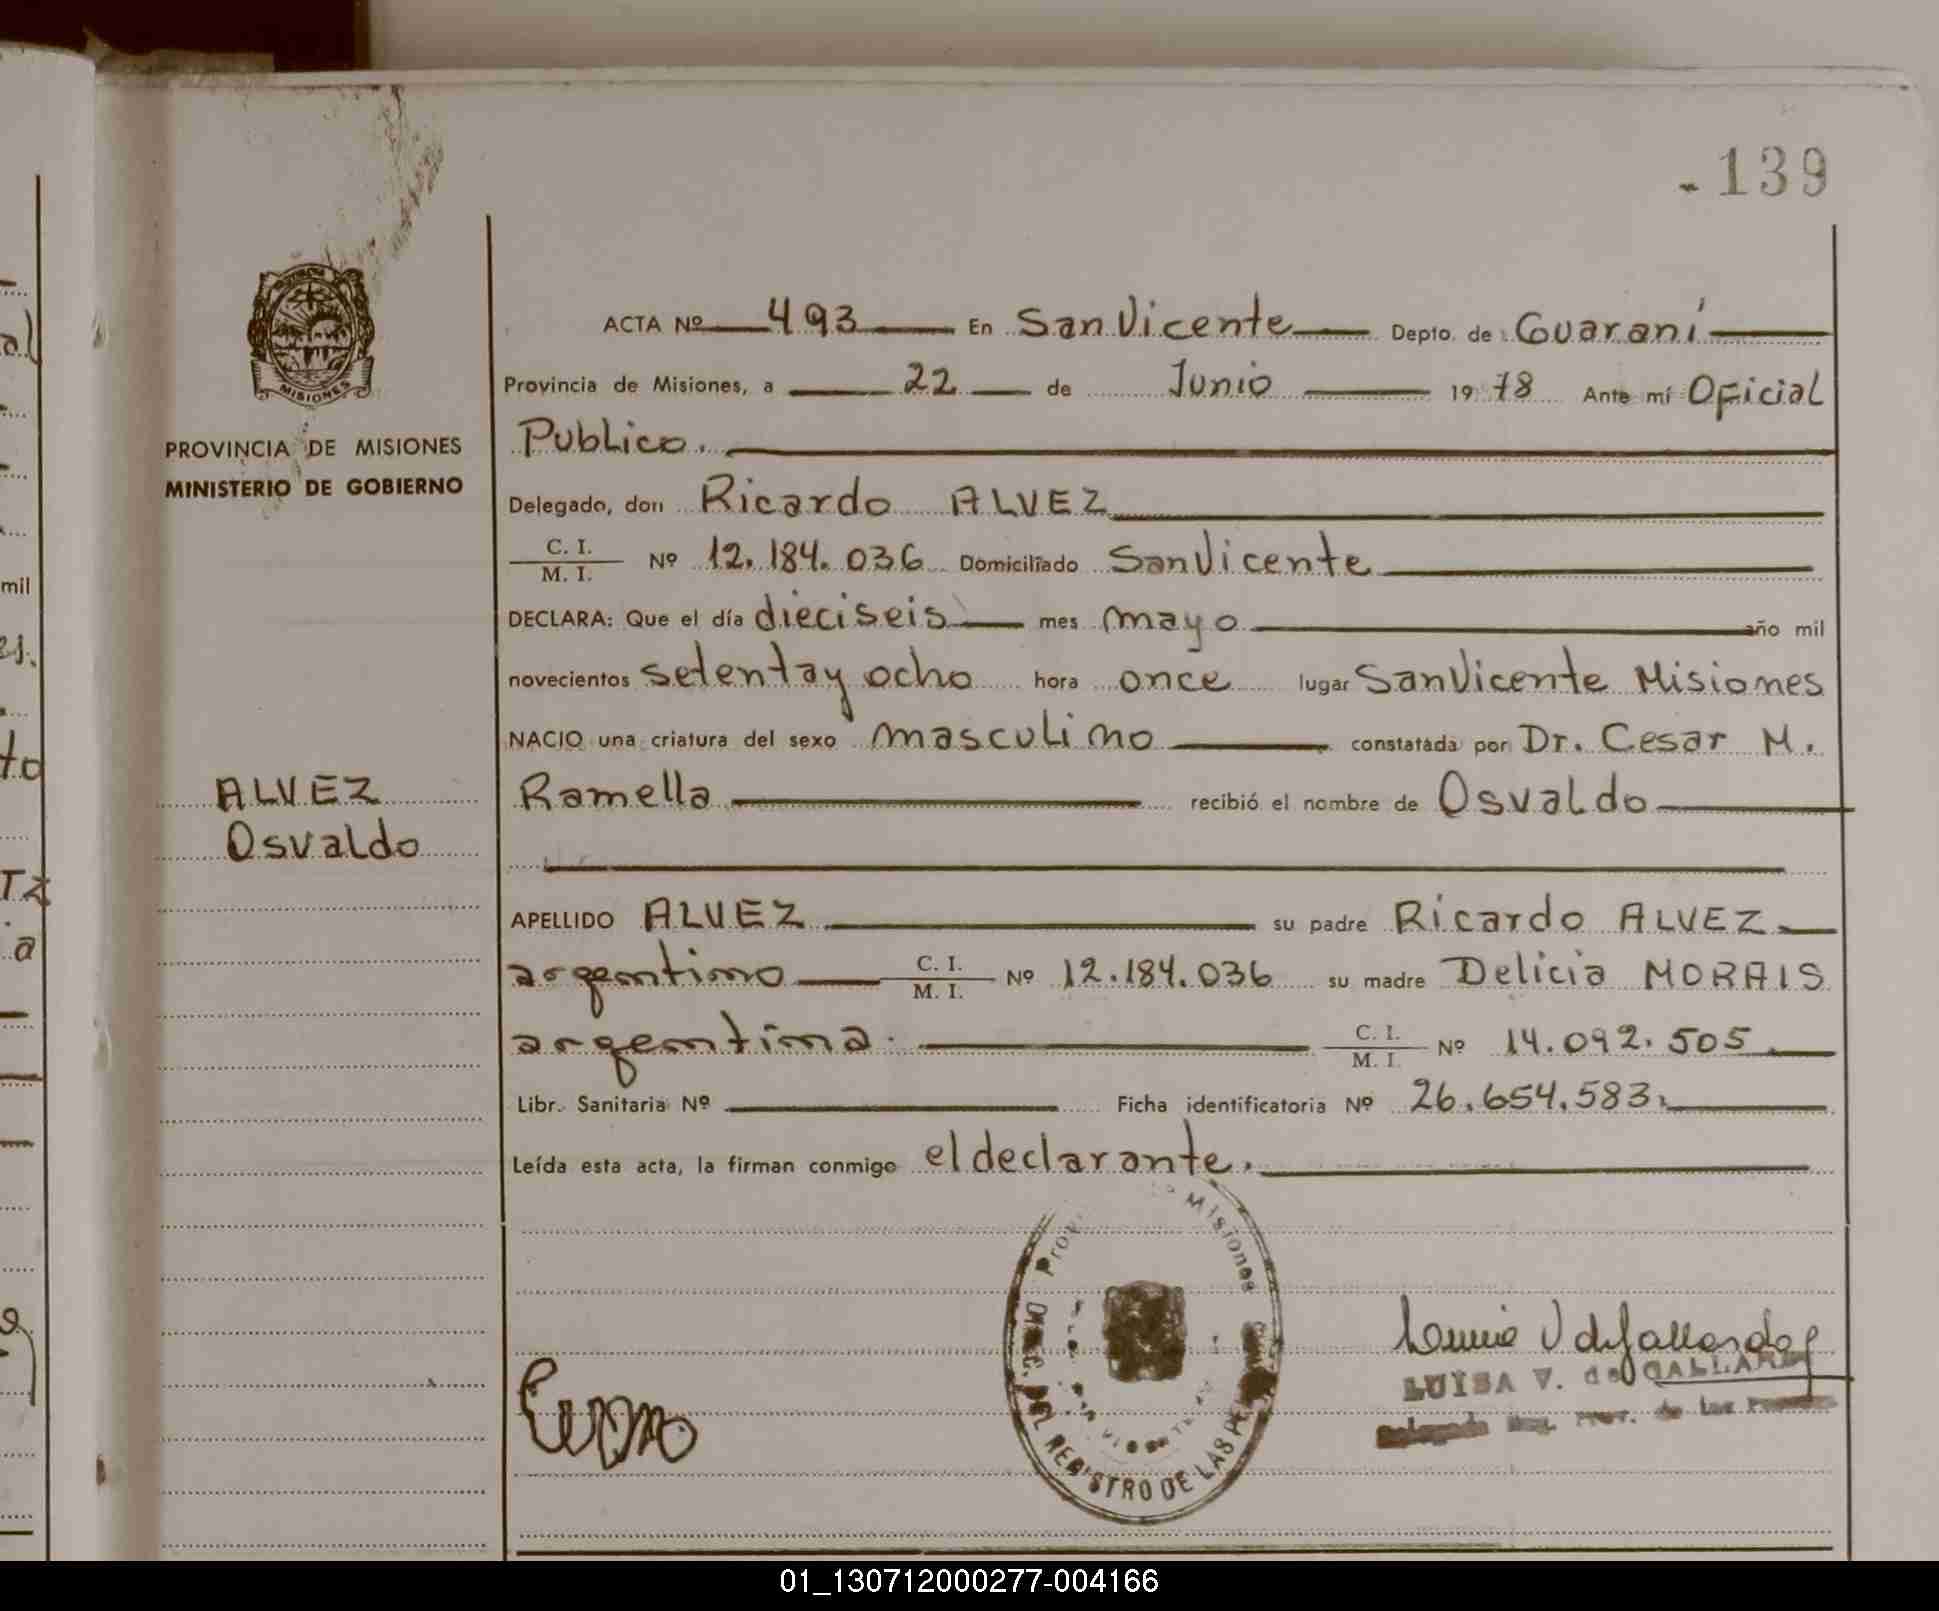 - 139
MISIONES
PROVINCIA DE MISIONES
MINISTERIO DE GOBIERNO
ALVEZ
Osvaldo
ACTA Nº 493 En San Vicente Depto. de Guaraní
Provincia de Misiones, a 22 de Junio 1978 Ante mí Oficial
Publico.
Delegado, don Ricardo ALVEZ
C. I.
M. I. Nº 12.184.036 Domiciliado San Vicente
DECLARA: Que el día dieciseis mes mayo año mil
novecientos setenta y ocho hora once lugar San Vicente Misiones
NACIO una criatura del sexo masculino constatada por Dr. Cesar M.
Ramella recibió el nombre de Osvaldo
APELLIDO ALVEZ su padre Ricardo ALVEZ
argentino C. I.
M. I. Nº 12.184.036 su madre Delicia MORAIS
argentina. C. I.
M. I. Nº 14.092.505
Libr. Sanitaria Nº Ficha identificatoria Nº 26.654.583.
Leída esta acta, la firman conmigo el declarante.
Misiones
DEL REGISTRO DE LAS
LUISA V. de GALLARDO
mil
01_130712000277-004166